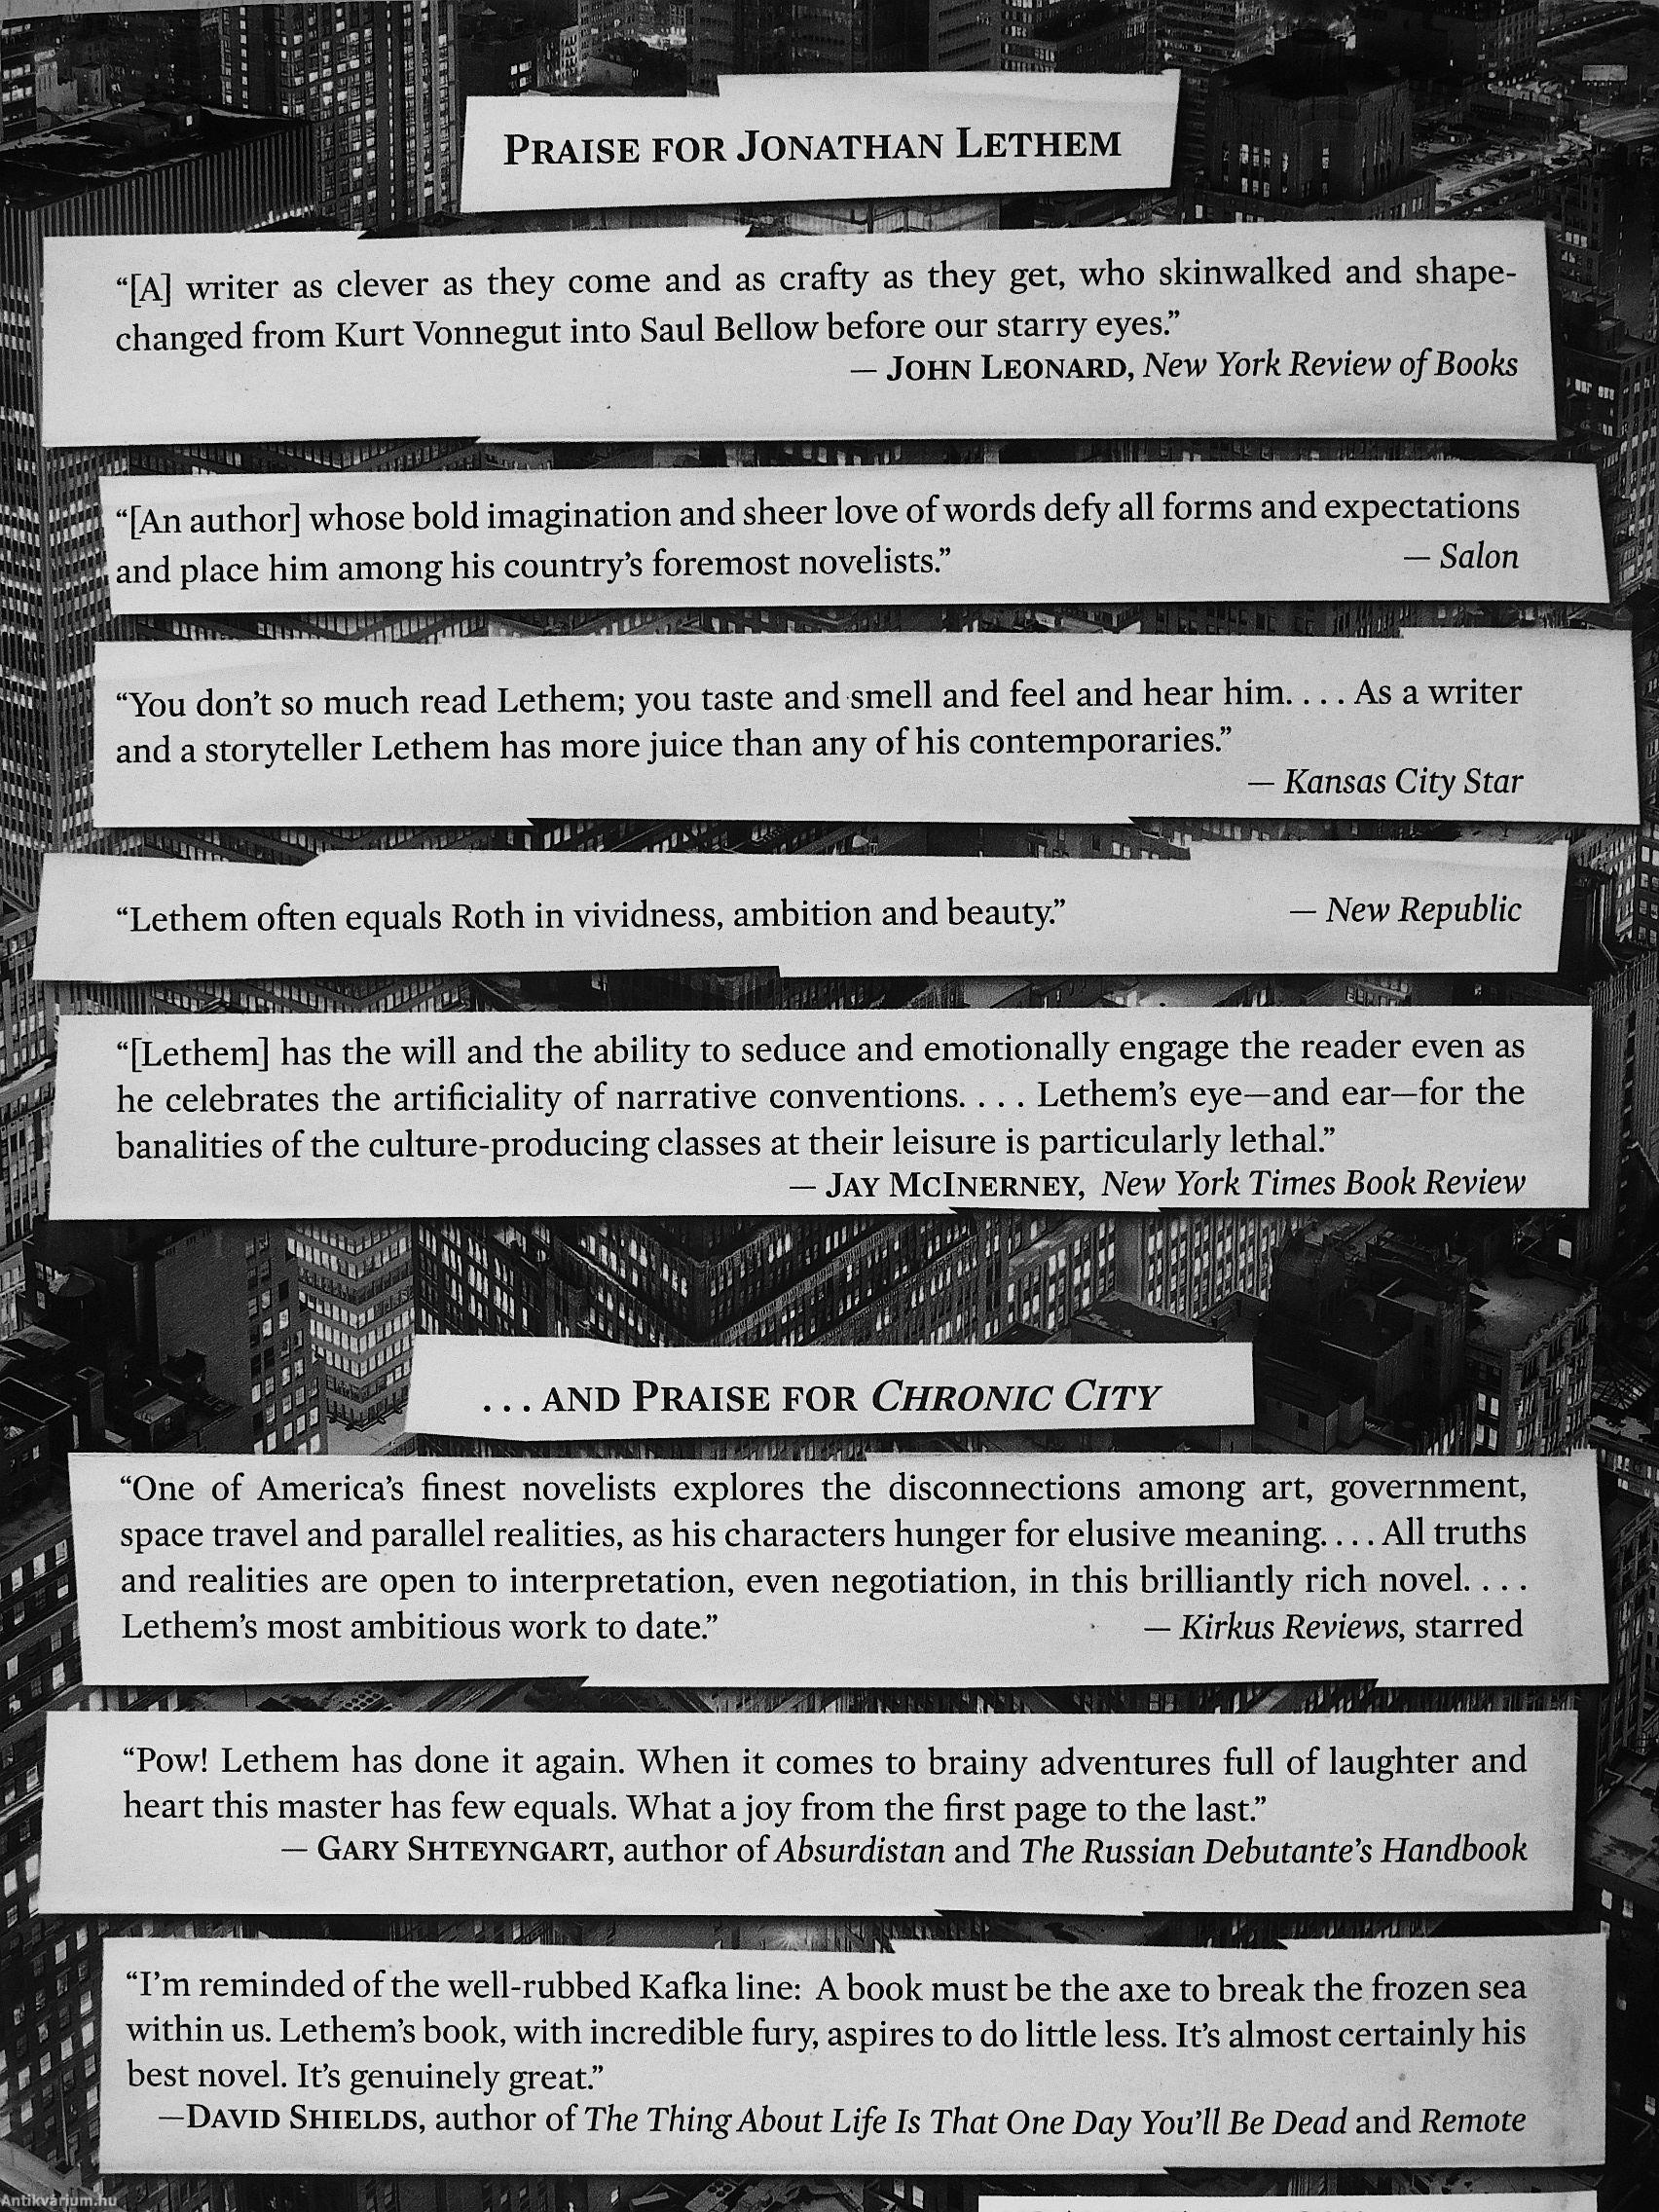 PRAISE FOR JONATHAN LETHEM
“[A] writer as clever as they come and as crafty as they get, who skinwalked and shape-
changed from Kurt Vonnegut into Saul Bellow before our starry eyes.”
— JOHN LEONARD, New York Review of Books
“[An author] whose bold imagination and sheer love of words defy all forms and expectations
and place him among his country’s foremost novelists.” — Salon
“You don’t so much read Lethem; you taste and smell and feel and hear him. . . . As a writer
and a storyteller Lethem has more juice than any of his contemporaries.”
— Kansas City Star
“Lethem often equals Roth in vividness, ambition and beauty.” — New Republic
“[Lethem] has the will and the ability to seduce and emotionally engage the reader even as
he celebrates the artificiality of narrative conventions. . . . Lethem’s eye—and ear—for the
banalities of the culture-producing classes at their leisure is particularly lethal.”
— JAY MCINERNEY, New York Times Book Review
. . . AND PRAISE FOR CHRONIC CITY
“One of America’s finest novelists explores the disconnections among art, government,
space travel and parallel realities, as his characters hunger for elusive meaning. . . . All truths
and realities are open to interpretation, even negotiation, in this brilliantly rich novel. . . .
Lethem’s most ambitious work to date.” — Kirkus Reviews, starred
“Pow! Lethem has done it again. When it comes to brainy adventures full of laughter and
heart this master has few equals. What a joy from the first page to the last.”
— GARY SHTEYNGART, author of Absurdistan and The Russian Debutante’s Handbook
“I’m reminded of the well-rubbed Kafka line: A book must be the axe to break the frozen sea
within us. Lethem’s book, with incredible fury, aspires to do little less. It’s almost certainly his
best novel. It’s genuinely great.”
—DAVID SHIELDS, author of The Thing About Life Is That One Day You’ll Be Dead and Remote
Antikvárium.hu